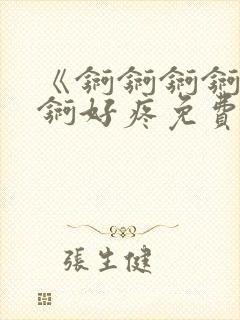 《锕锕锕锕
锕好疼免費
張生健